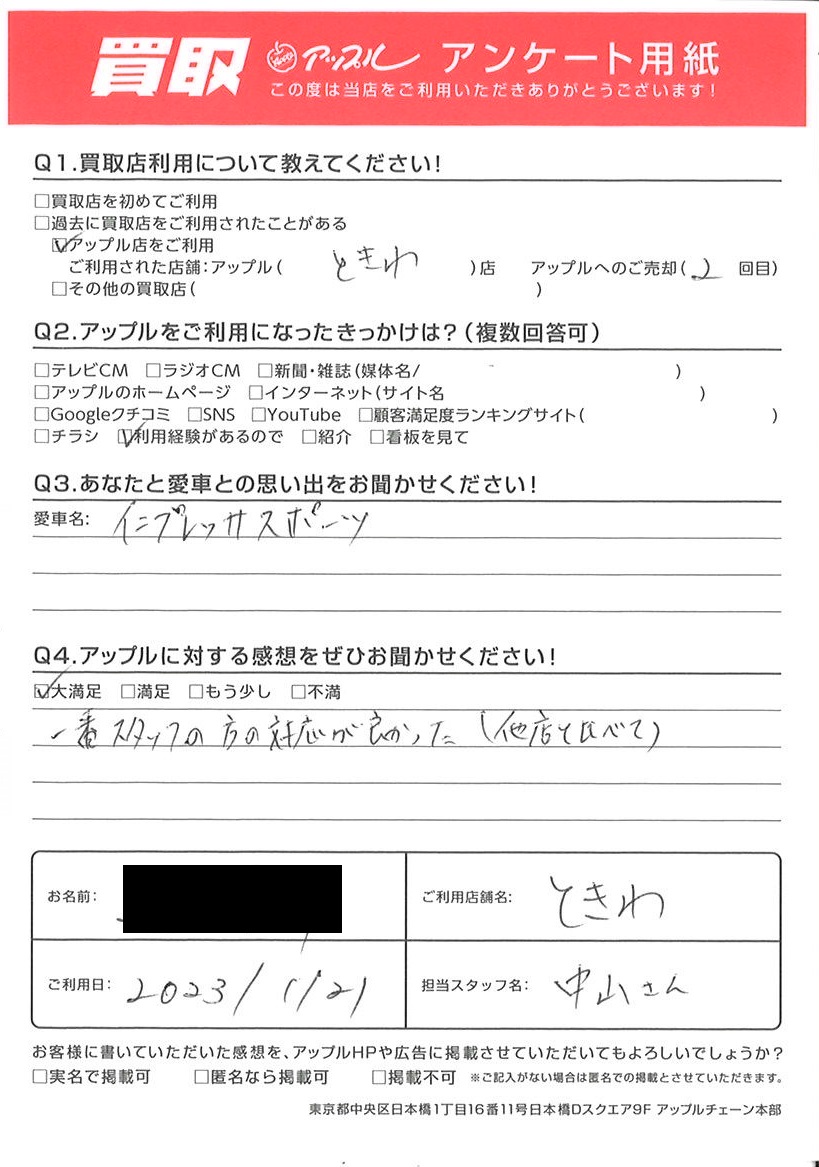 買取 アップル アンケート用紙
この度は当店をご利用いただきありがとうございます!
Q1.買取店利用について教えてください!
□買取店を初めてご利用
□過去に買取店をご利用されたことがある
☑アップル店をご利用
ご利用された店舗:アップル( ときわ )店 アップルへのご売却( 2 回目)
□その他の買取店( )
Q2.アップルをご利用になったきっかけは?(複数回答可)
□テレビCM □ラジオCM □新聞・雑誌(媒体名/ )
□アップルのホームページ □インターネット(サイト名 )
□Googleクチコミ □SNS □YouTube □顧客満足度ランキングサイト( )
□チラシ ☑利用経験があるので □紹介 □看板を見て
Q3.あなたと愛車との思い出をお聞かせください!
愛車名: インプレッサスポーツ
Q4.アップルに対する感想をぜひお聞かせください!
☑大満足 □満足 □もう少し □不満
一番スタッフの方の対応が良かった(他店と比べて)
お名前:
ご利用店舗名: ときわ
ご利用日: 2023/1/21
担当スタッフ名: 中山さん
お客様に書いていただいた感想を、アップルHPや広告に掲載させていただいてもよろしいでしょうか?
□実名で掲載可 □匿名なら掲載可 □掲載不可 ※ご記入がない場合は匿名での掲載とさせていただきます。
東京都中央区日本橋1丁目16番11号日本橋Dスクエア9F アップルチェーン本部